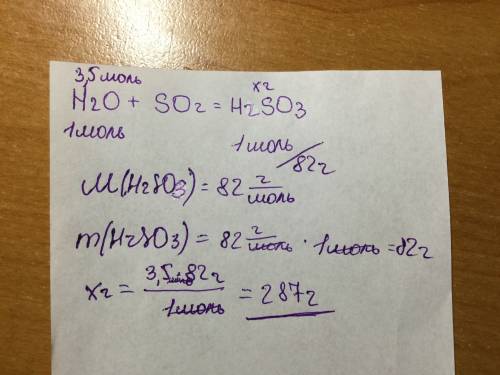 3,5 моль хг
H2O + SO2 = H2SO3
1 моль 1 моль/82г
M(H2SO3) = 82 г/моль
m(H2SO3) = 82 г/моль · 1 моль = 82г
хг = 3,5 моль 82г / 1 моль = 287г